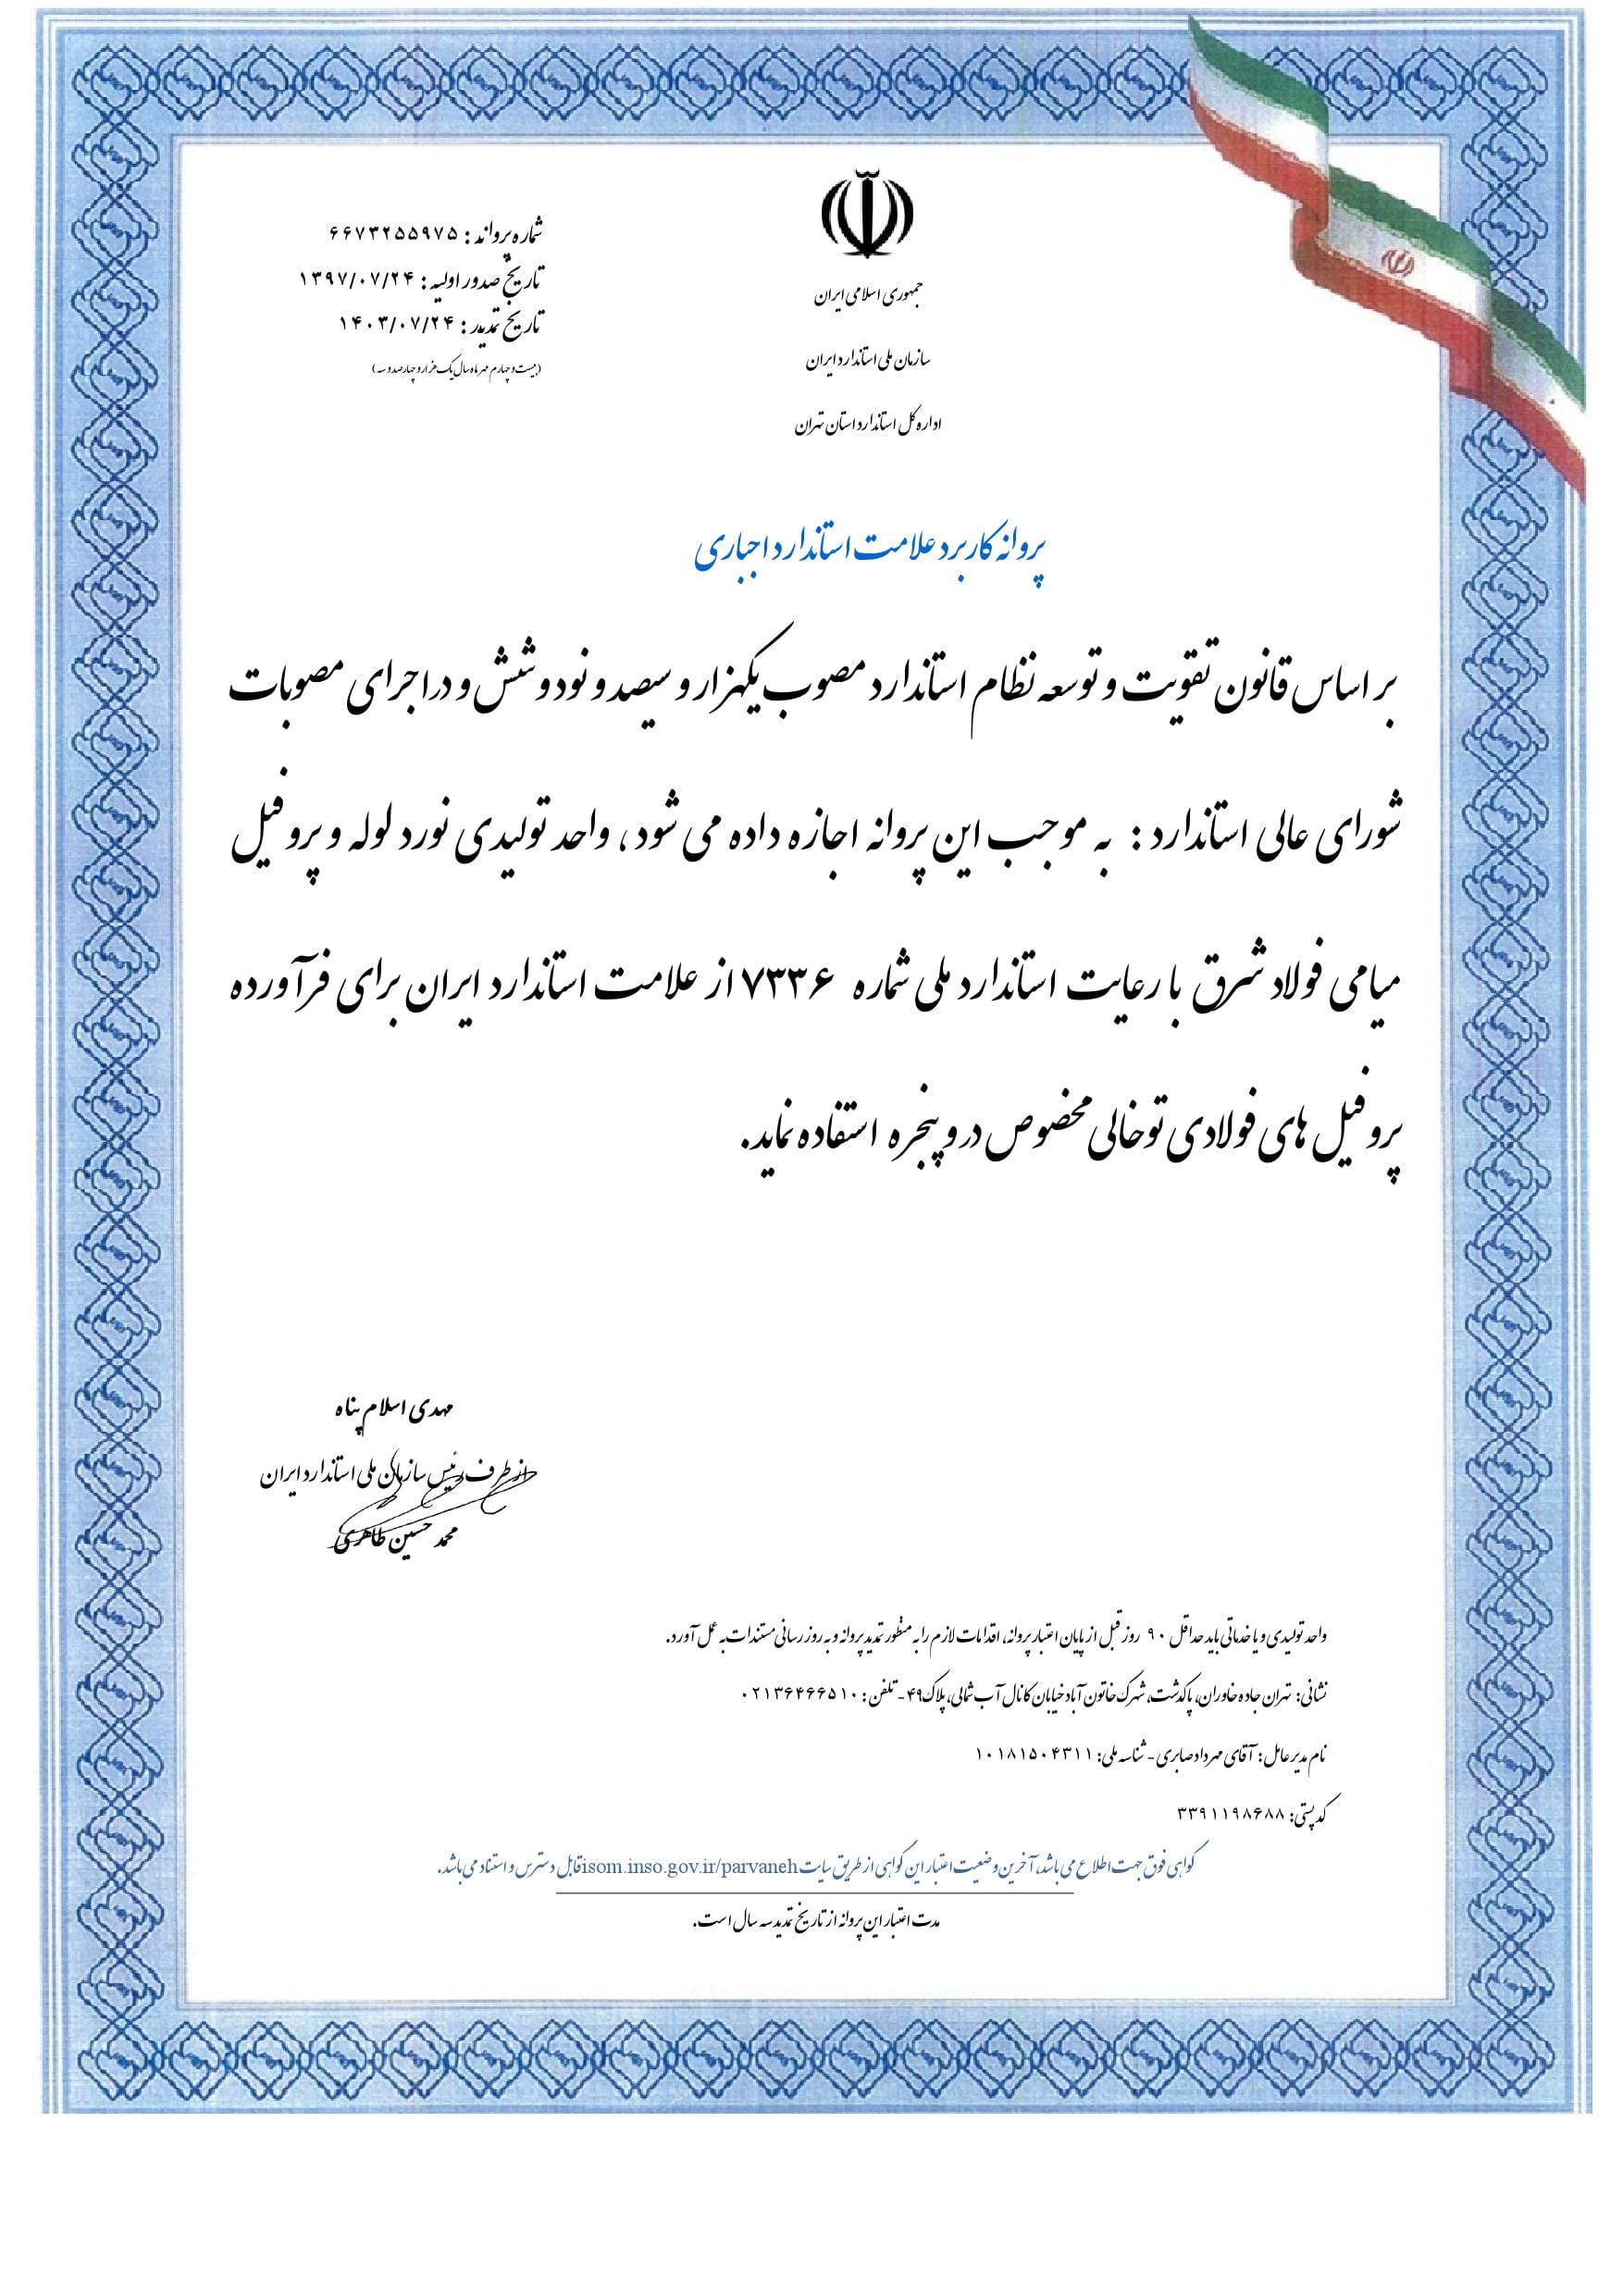 جمهوری اسلامی ایران
سازمان ملی استاندارد ایران
اداره کل استاندارد استان تهران
شماره پروانه : ۶۶۷۳۲۵۵۹۷۵
تاریخ صدور اولیه : ۱۳۹۷/۰۷/۲۴
تاریخ تمدید : ۱۴۰۳/۰۷/۲۴
(بیست و چهارم مهر ماه سال یک هزار و چهارصد و سه)
پروانه کاربرد علامت استاندارد اجباری
بر اساس قانون تقویت و توسعه نظام استاندارد مصوب یکهزار و سیصد و نود و شش و در اجرای مصوبات
شورای عالی استاندارد : به موجب این پروانه اجازه داده می شود، واحد تولیدی نورد لوله و پروفیل
میامی فولاد شرق با رعایت استاندارد ملی شماره ۷۳۳۶ از علامت استاندارد ایران برای فرآورده
پروفیل های فولادی توخالی مخصوص در و پنجره استفاده نماید.
مهدی اسلام پناه
از طرف رئیس سازمان ملی استاندارد ایران
محمد حسین طاهری
واحد تولیدی و یا خدماتی باید حداقل ۹۰ روز قبل از پایان اعتبار پروانه، اقدامات لازم را به منظور تمدید پروانه و به روز رسانی مستندات به عمل آورد.
نشانی: تهران جاده خاوران، پاکدشت، شهرک خاتون آباد خیابان کانال آب شمالی، پلاک ۴۹ - تلفن : ۰۲۱۳۶۴۶۶۵۱۰
نام مدیر عامل : آقای مهرداد صابری - شناسه ملی: ۱۰۱۸۱۵۰۴۳۱۱
کد پستی: ۳۳۹۱۱۹۸۶۸۸
گواهی فوق جهت اطلاع می باشد، آخرین وضعیت اعتبار این گواهی از طریق سایت isom.inso.gov.ir/parvaneh قابل دسترس و استناد می باشد.
مدت اعتبار این پروانه از تاریخ تمدید سه سال است.